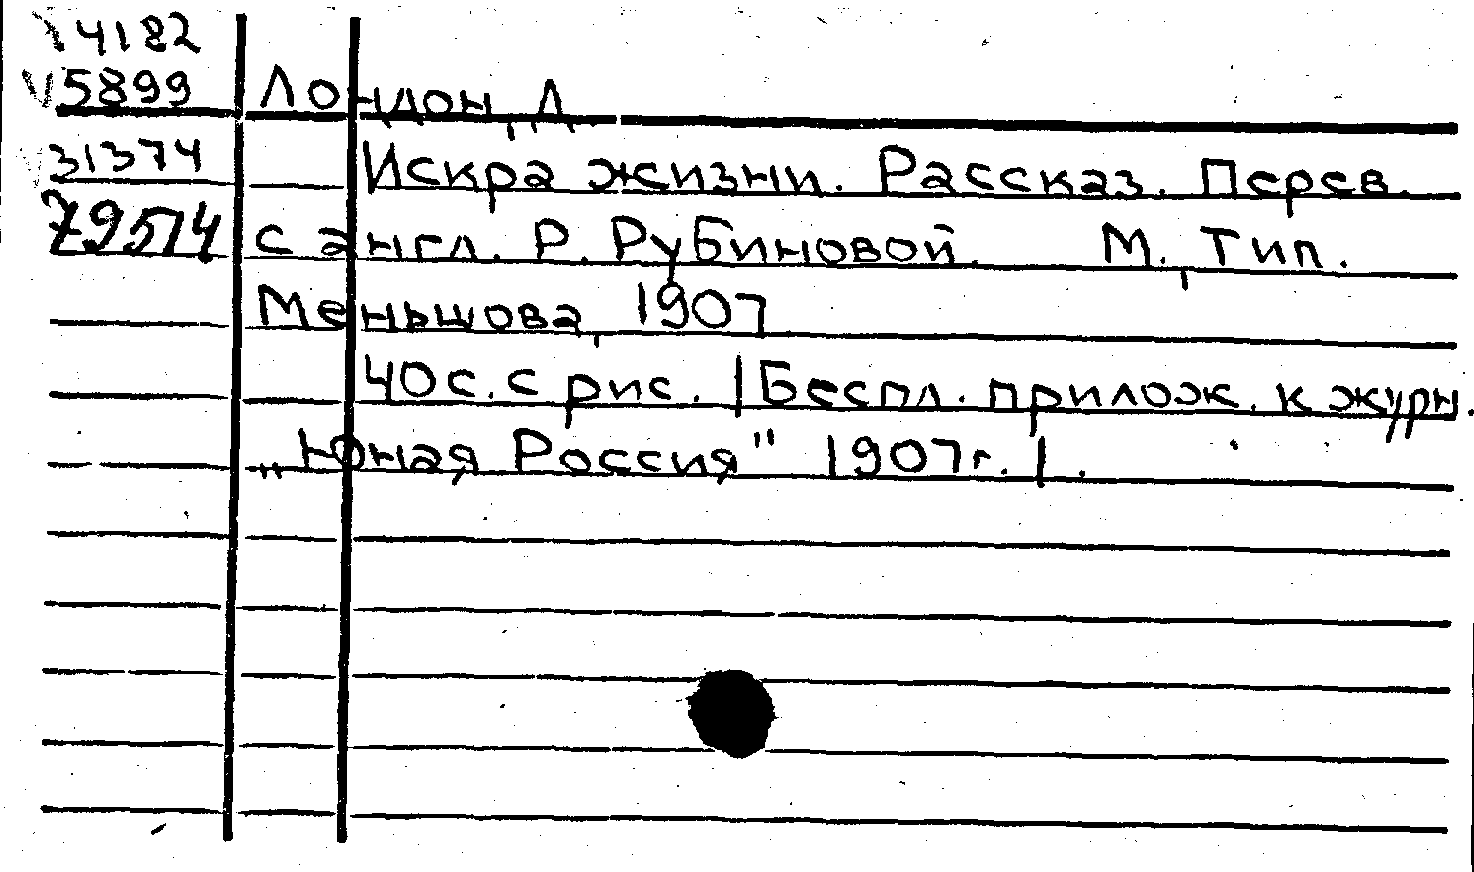 14182
V5899 Лондон, Д.
31374 Искра жизни. Рассказ. Перев.
79574 с англ. Р. Рубиновой. М., Тип.
Меньшова, 1907
40 с. с рис. |Беспл. прилож. к журн.
„Юная Россия" 1907г.|.